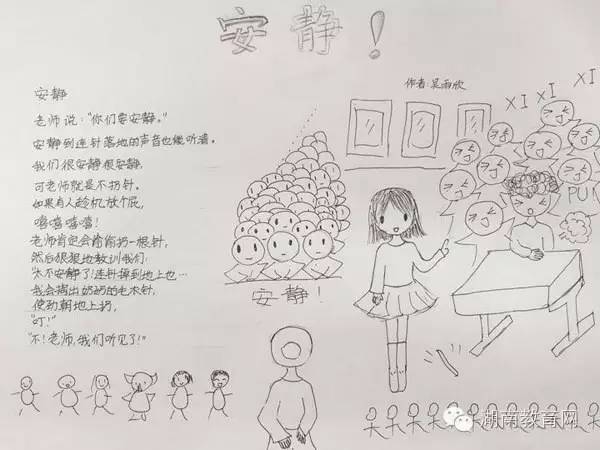 安静！
作者：吴雨欣
安静
老师说："你们要安静。"
安静到连针落地的声音也能听清。
我们很安静很安静，
可老师就是不扔针。
如果有人趁机放个屁，
嘻嘻嘻嘻！
老师肯定会偷偷扔一根针，
然后狠狠地教训我们：
"太不安静了！连针掉到地上也…
我会掏出奶奶的毛衣针，
使劲朝地上扔，
"叮！"
"不！老师，我们听见了！"
XI
XI
XI
XI
PU
安静！
湖南教育网